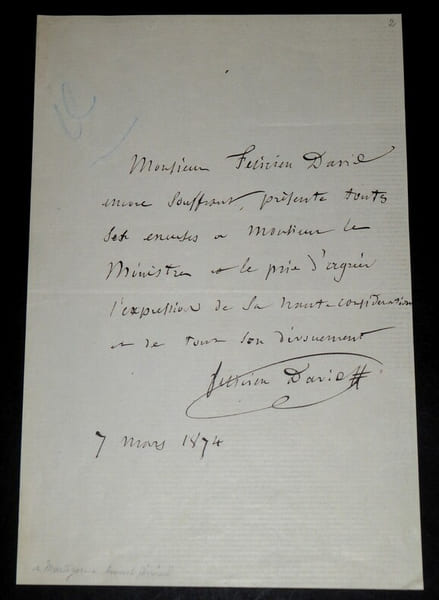 2
Monsieur Félicien David
encore souffrant, présente touts
ses excuses a Monsieur le
Ministre et le prie d'agréer
l'expression de sa haute considération
et de tout son dévouement
Félicien David
7 mars 1874